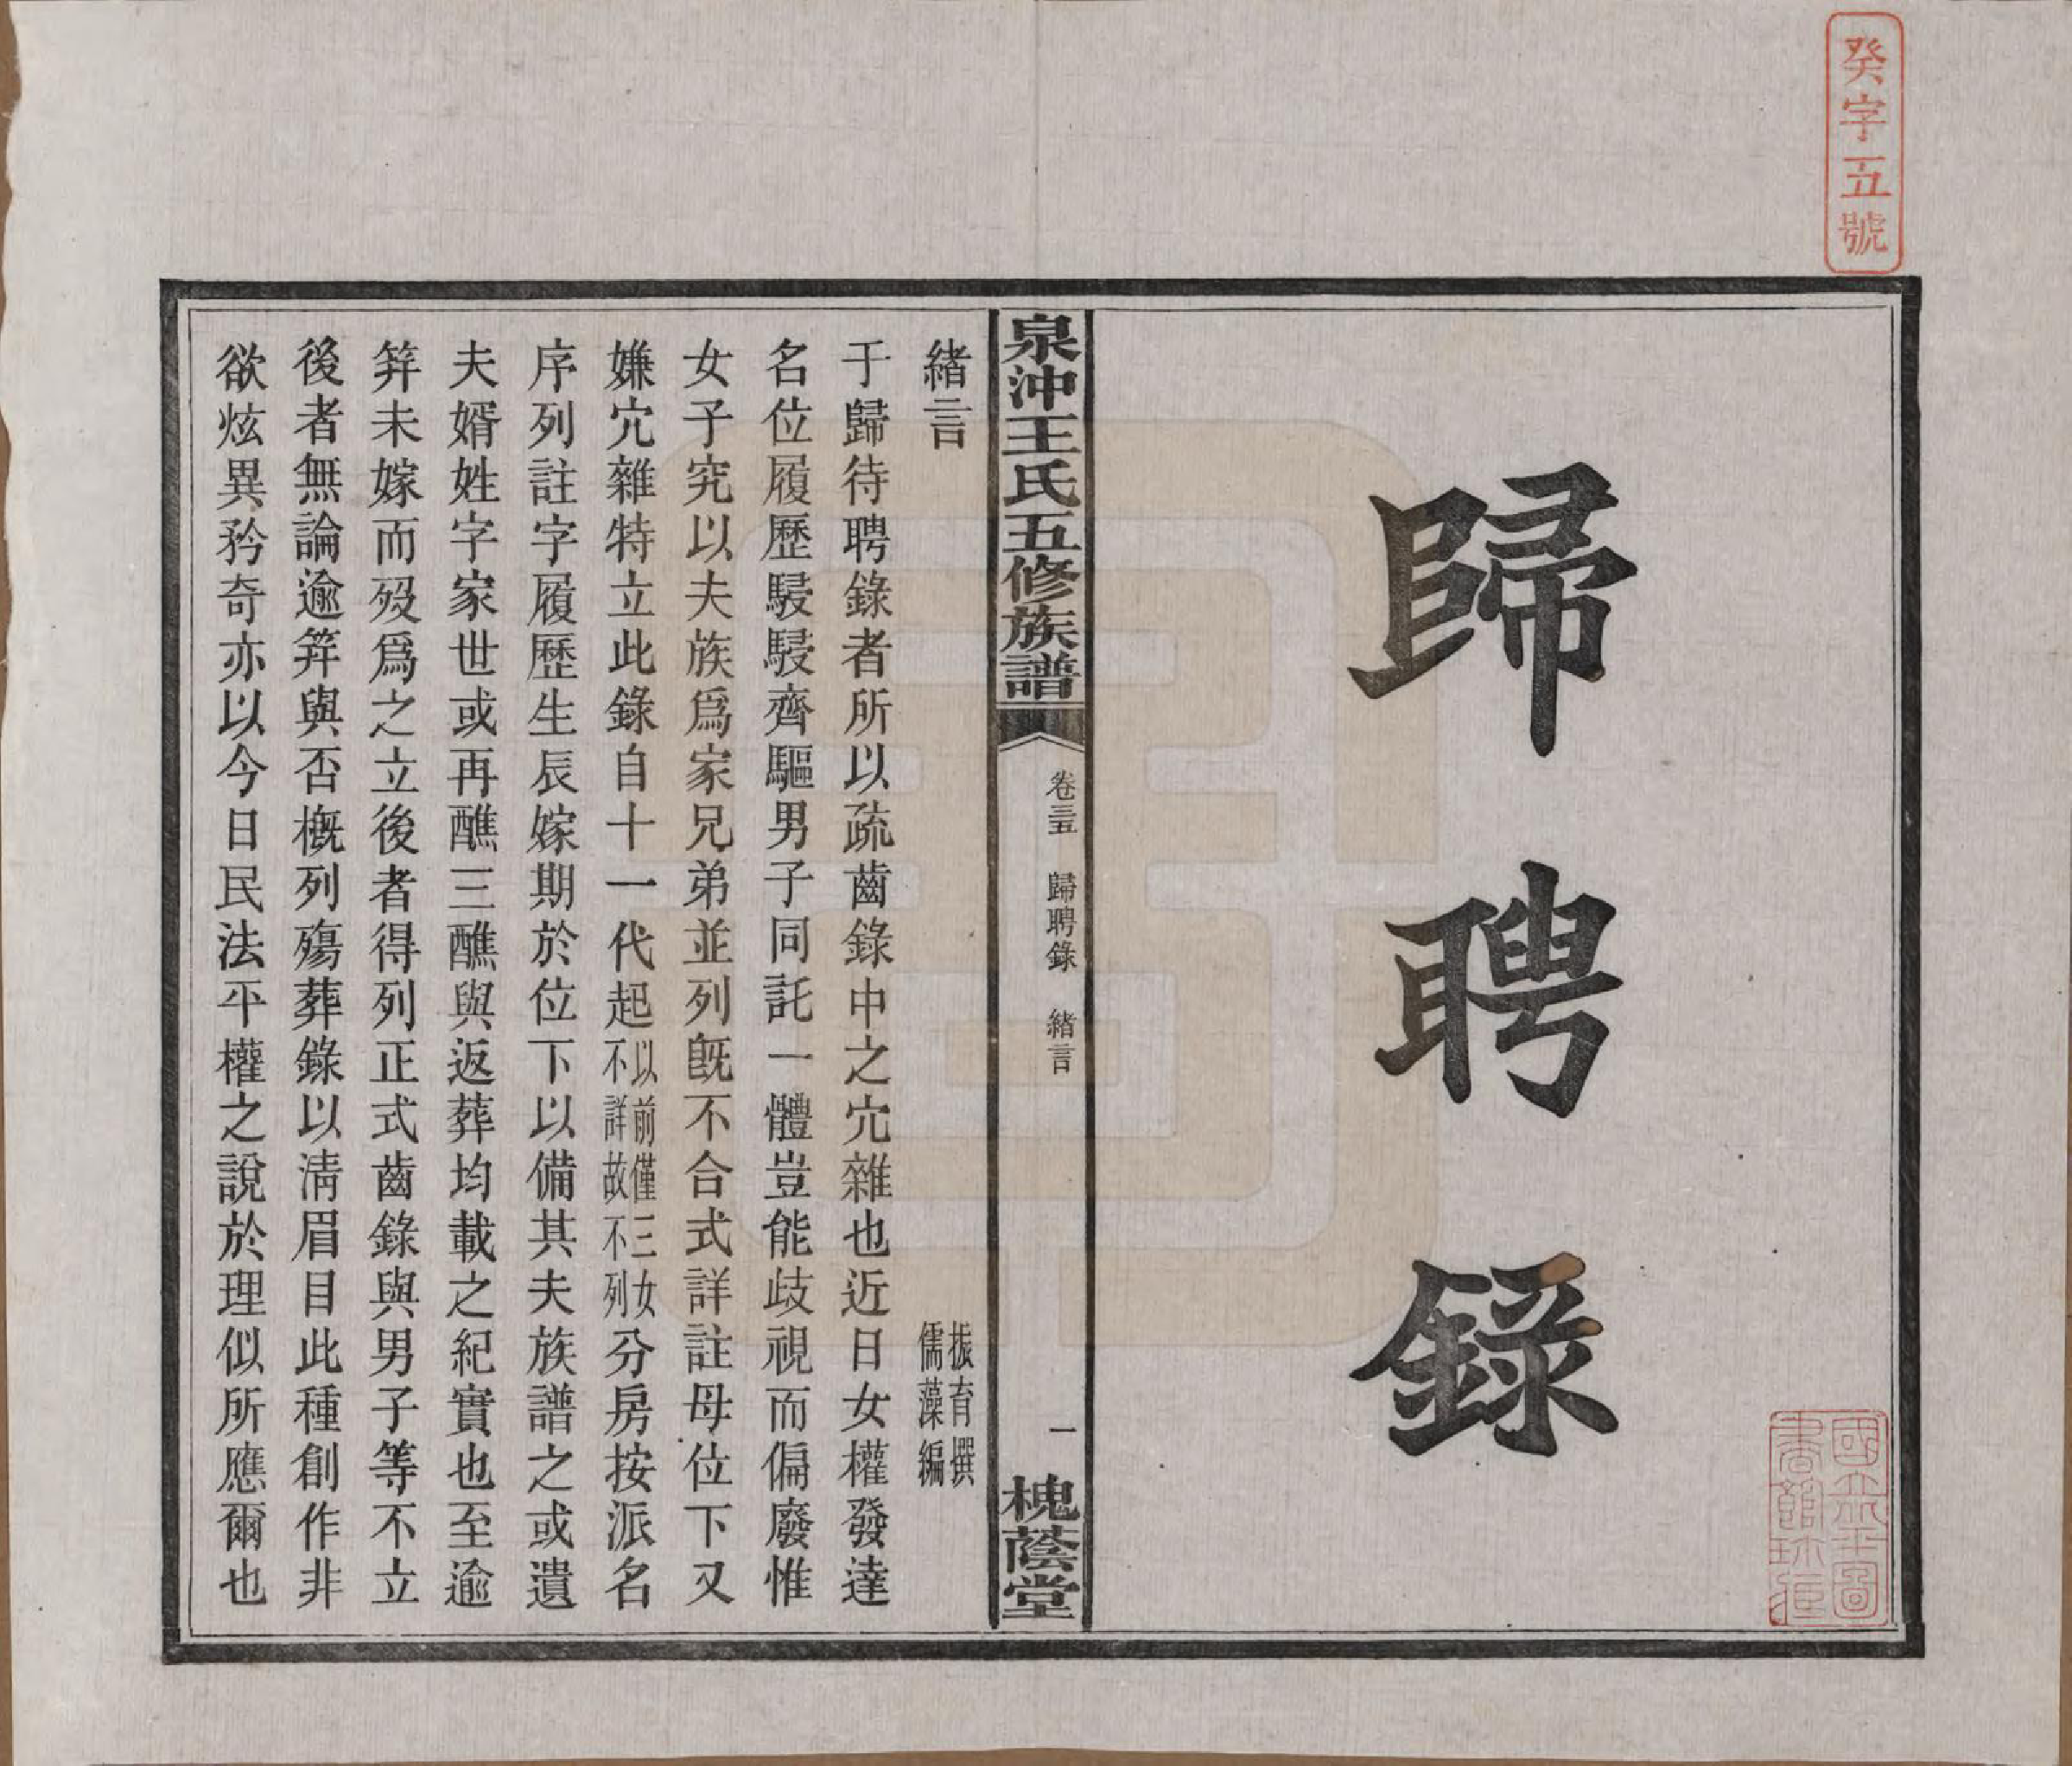 癸字五號
歸聘錄
國立北平圖
書館珍藏
泉沖王氏五修族譜
卷三五 歸聘錄 緒言
一
槐蔭堂
緒言
振育撰
儒藻編
于歸待聘錄者所以疏齒錄中之宂雜也近日女權發達
名位履歷駸駸齊驅男子同託一體豈能歧視而偏廢惟
女子究以夫族爲家兄弟並列旣不合式詳註母位下又
嫌宂雜特立此錄自十一代起以前僅三女不詳故不列分房按派名
序列註字履歷生辰嫁期於位下以備其夫族譜之或遺
夫婿姓字家世或再醮三醮與返葬均載之紀實也至逾
笄未嫁而歿爲之立後者得列正式齒錄與男子等不立
後者無論逾笄與否概列殤葬錄以淸眉目此種創作非
欲炫異矜奇亦以今日民法平權之說於理似所應爾也